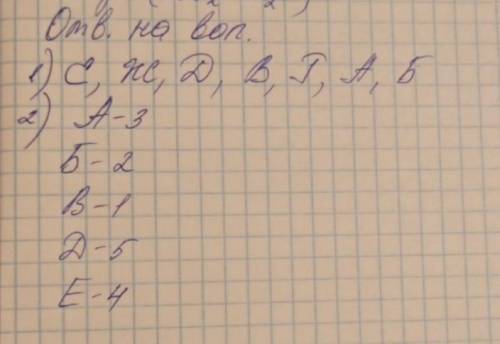 Отв. на воп.
1) С, Ж, Д, В, Г, А, Б
2) А-3
Б-2
В-1
Д-5
Е-4